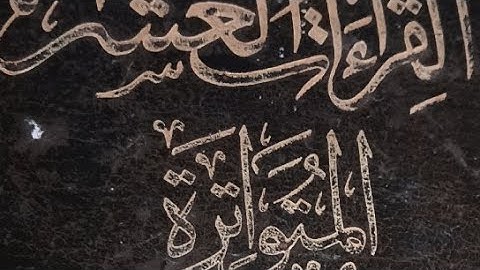 القراءات العشر
المتواترة